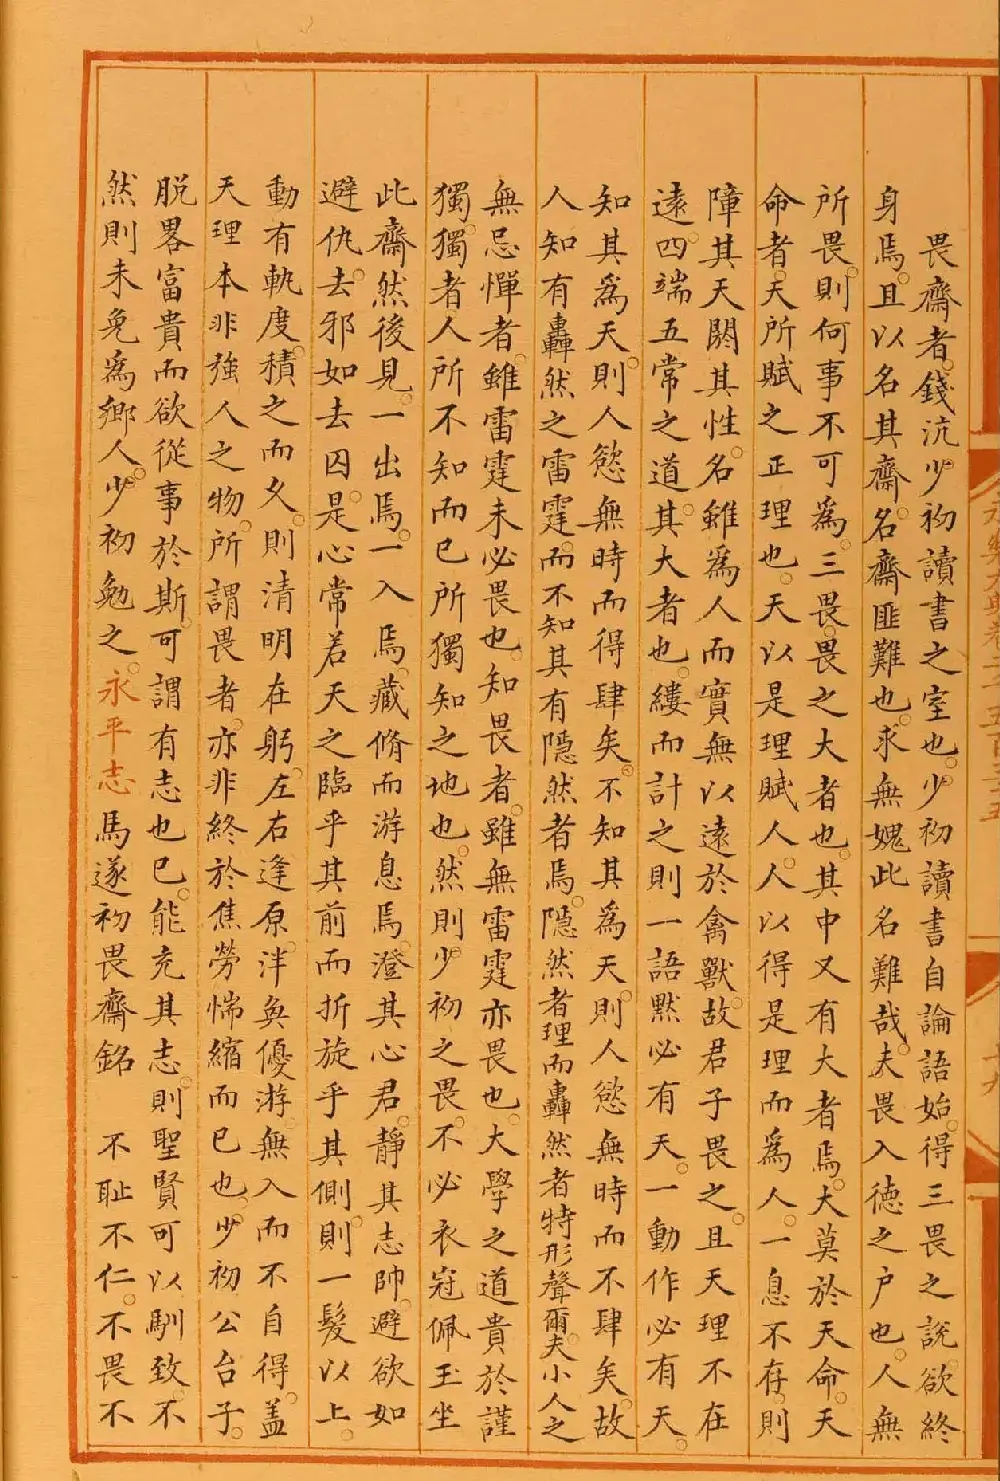 畏齋者。錢沆少初讀書之室也。少初讀書自論語始。得三畏之說。欲終
身焉。且以名其齋。名齋匪難也。求無媿此名難哉。夫畏入德之户也。人無
所畏。則何事不可為。三畏。畏之大者也。其中又有大者焉。大莫於天命。天
命者。天所賦之正理也。天以是理賦人。人以得是理而為人。一息不存。則
障其天閼其性。名雖為人而實無以遠於禽獸。故君子畏之。且天理不在
遠。四端五常之道。其大者也。縷而計之則一語默必有天。一動作必有天。
知其為天。則人慾無時而得肆矣。不知其為天。則人慾無時而不肆矣。故
人知有轟然之雷霆。而不知其有隠然者焉。隠然者理而轟然者特形聲爾。夫小人之
無忌憚者。雖雷霆未必畏也。知畏者。雖無雷霆亦畏也。大學之道貴於謹
獨。獨者。人所不知而已所獨知之地也。然則。少初之畏。不必衣冠佩玉坐
此齋然後見。一出焉。一入焉。藏脩而游息焉。澄其心君。靜其志帥。避欲如
避仇。去邪如去囚。是心常若天之臨乎其前而折旋乎其側。則一髮以上。
動有軌度。積之而久。則清明在躬。左右逢原。泮奐優游。無入而不自得。蓋
天理本非強人之物。所謂畏者。亦非終於焦勞惴縮而已也。少初公台子。
脱畧富貴而欲從事於斯。可謂有志也已。能充其志。則聖賢可以馴致。不
然則未免為鄉人。少初勉之。永平志馬遂初畏齋銘 不耻不仁。不畏不